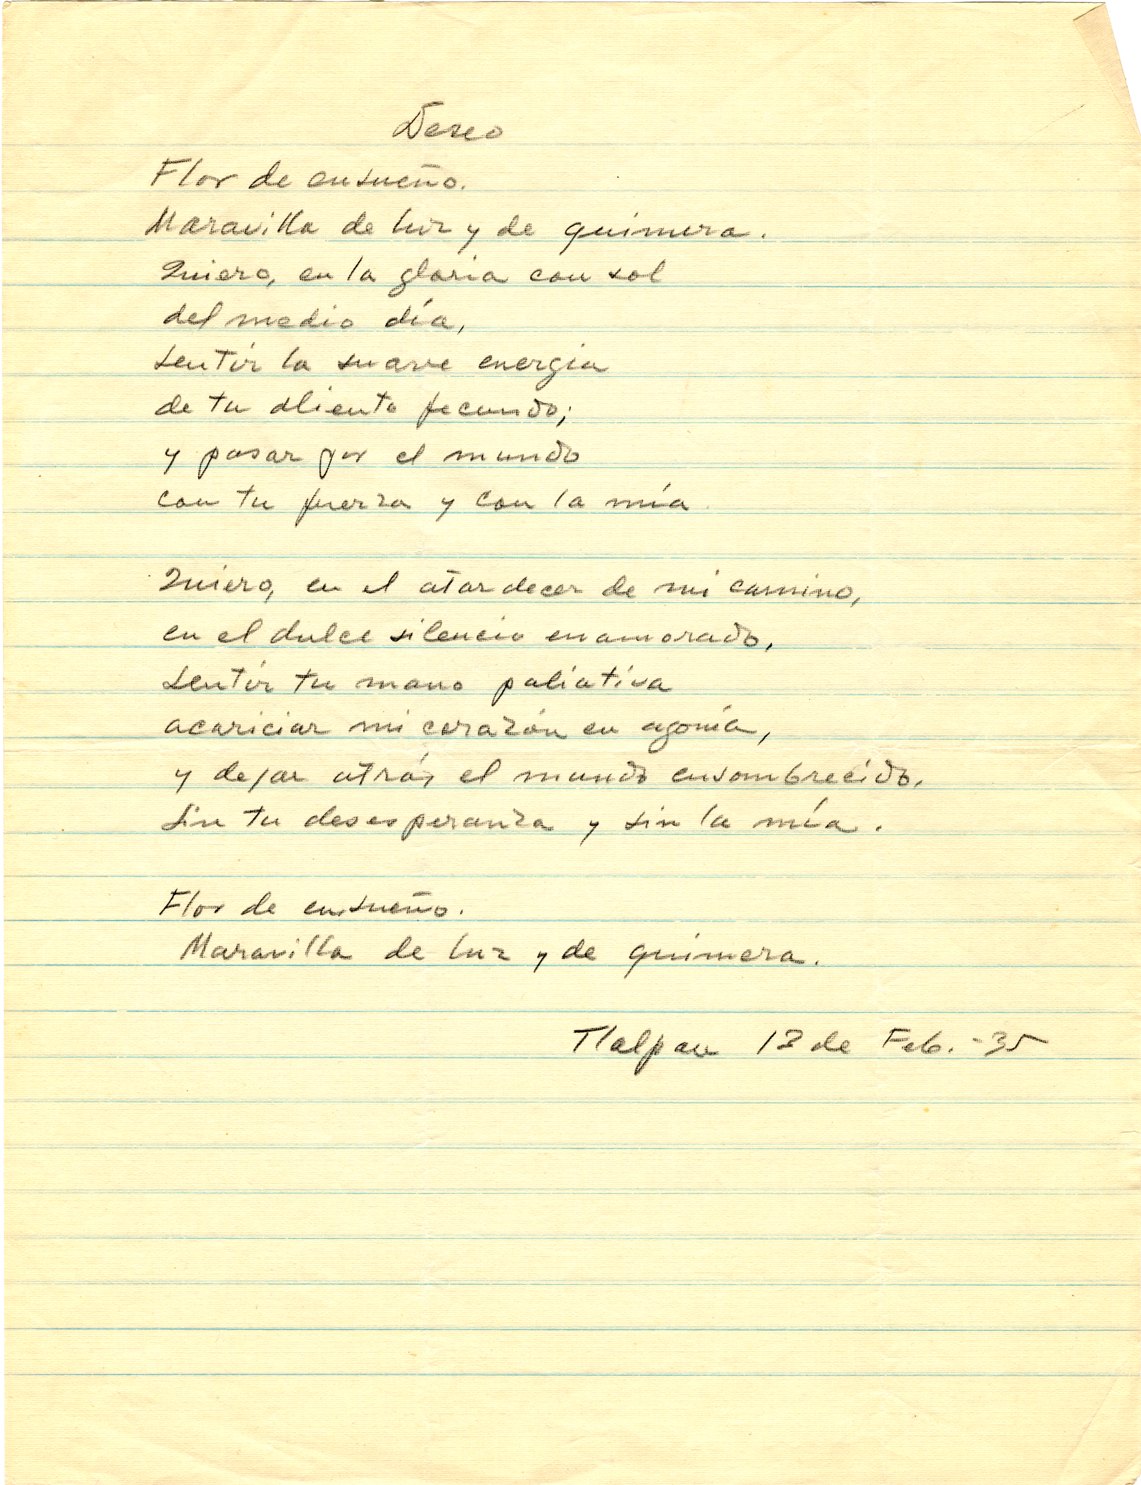 Deseo
Flor de ensueño.
Maravilla de luz y de quimera.
Quiero, en la gloria con sol
del medio día,
sentir la suave energia
de tu aliento fecundo;
y pasar por el mundo
con tu fuerza y con la mía.
Quiero, en el atardecer de mi camino,
en el dulce silencio enamorado,
sentir tu mano paliativa
acariciar mi corazón en agonía,
y dejar atrás el mundo ensombrecido.
Sin tu desesperanza y sin la mía.
Flor de ensueño.
Maravilla de luz y de quimera.
Tlalpan de Feb. - 35